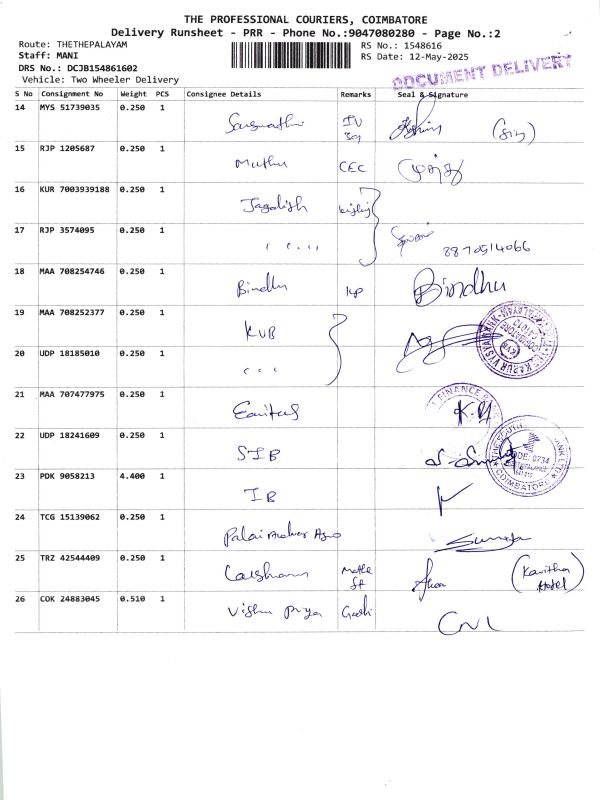 THE PROFESSIONAL COURIERS, COIMBATORE
Delivery Runsheet - PRR - Phone No.:9047080280 - Page No.:2
Route: THETHEPALAYAM
RS No.: 1548616
Staff: MANI
RS Date: 12-May-2025
DRS No.: DCJB154861602
DOCUMENT DELIVERY
Vehicle: Two Wheeler Delivery
S No Consignment No Weight PCS Consignee Details Remarks Seal & Signature
14 MYS 51739035 0.250 1
15 RJP 1205687 0.250 1 Muthu CEC
16 KUR 7003939188 0.250 1 Jagadish
17 RJP 3574095 0.250 1 8870514066
18 MAA 708254746 0.250 1 Bindhu Bindhu
19 MAA 708252377 0.250 1 KVB
20 UDP 18185010 0.250 1
21 MAA 707477975 0.250 1 Equitas
22 UDP 18241609 0.250 1 SIB
23 PDK 9058213 4.400 1 IB
24 TCG 15139062 0.250 1
25 TRZ 42544409 0.250 1 (Kavitha Hotel)
26 COK 24883045 0.510 1 Vishnu Priya